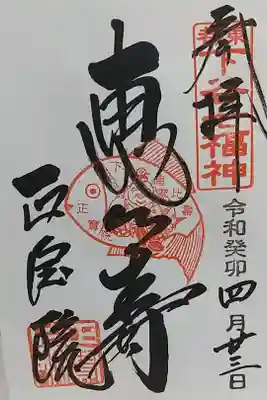 奉拝
下谷七福神
令和癸卯四月廿三日
恵比寿
正宝院